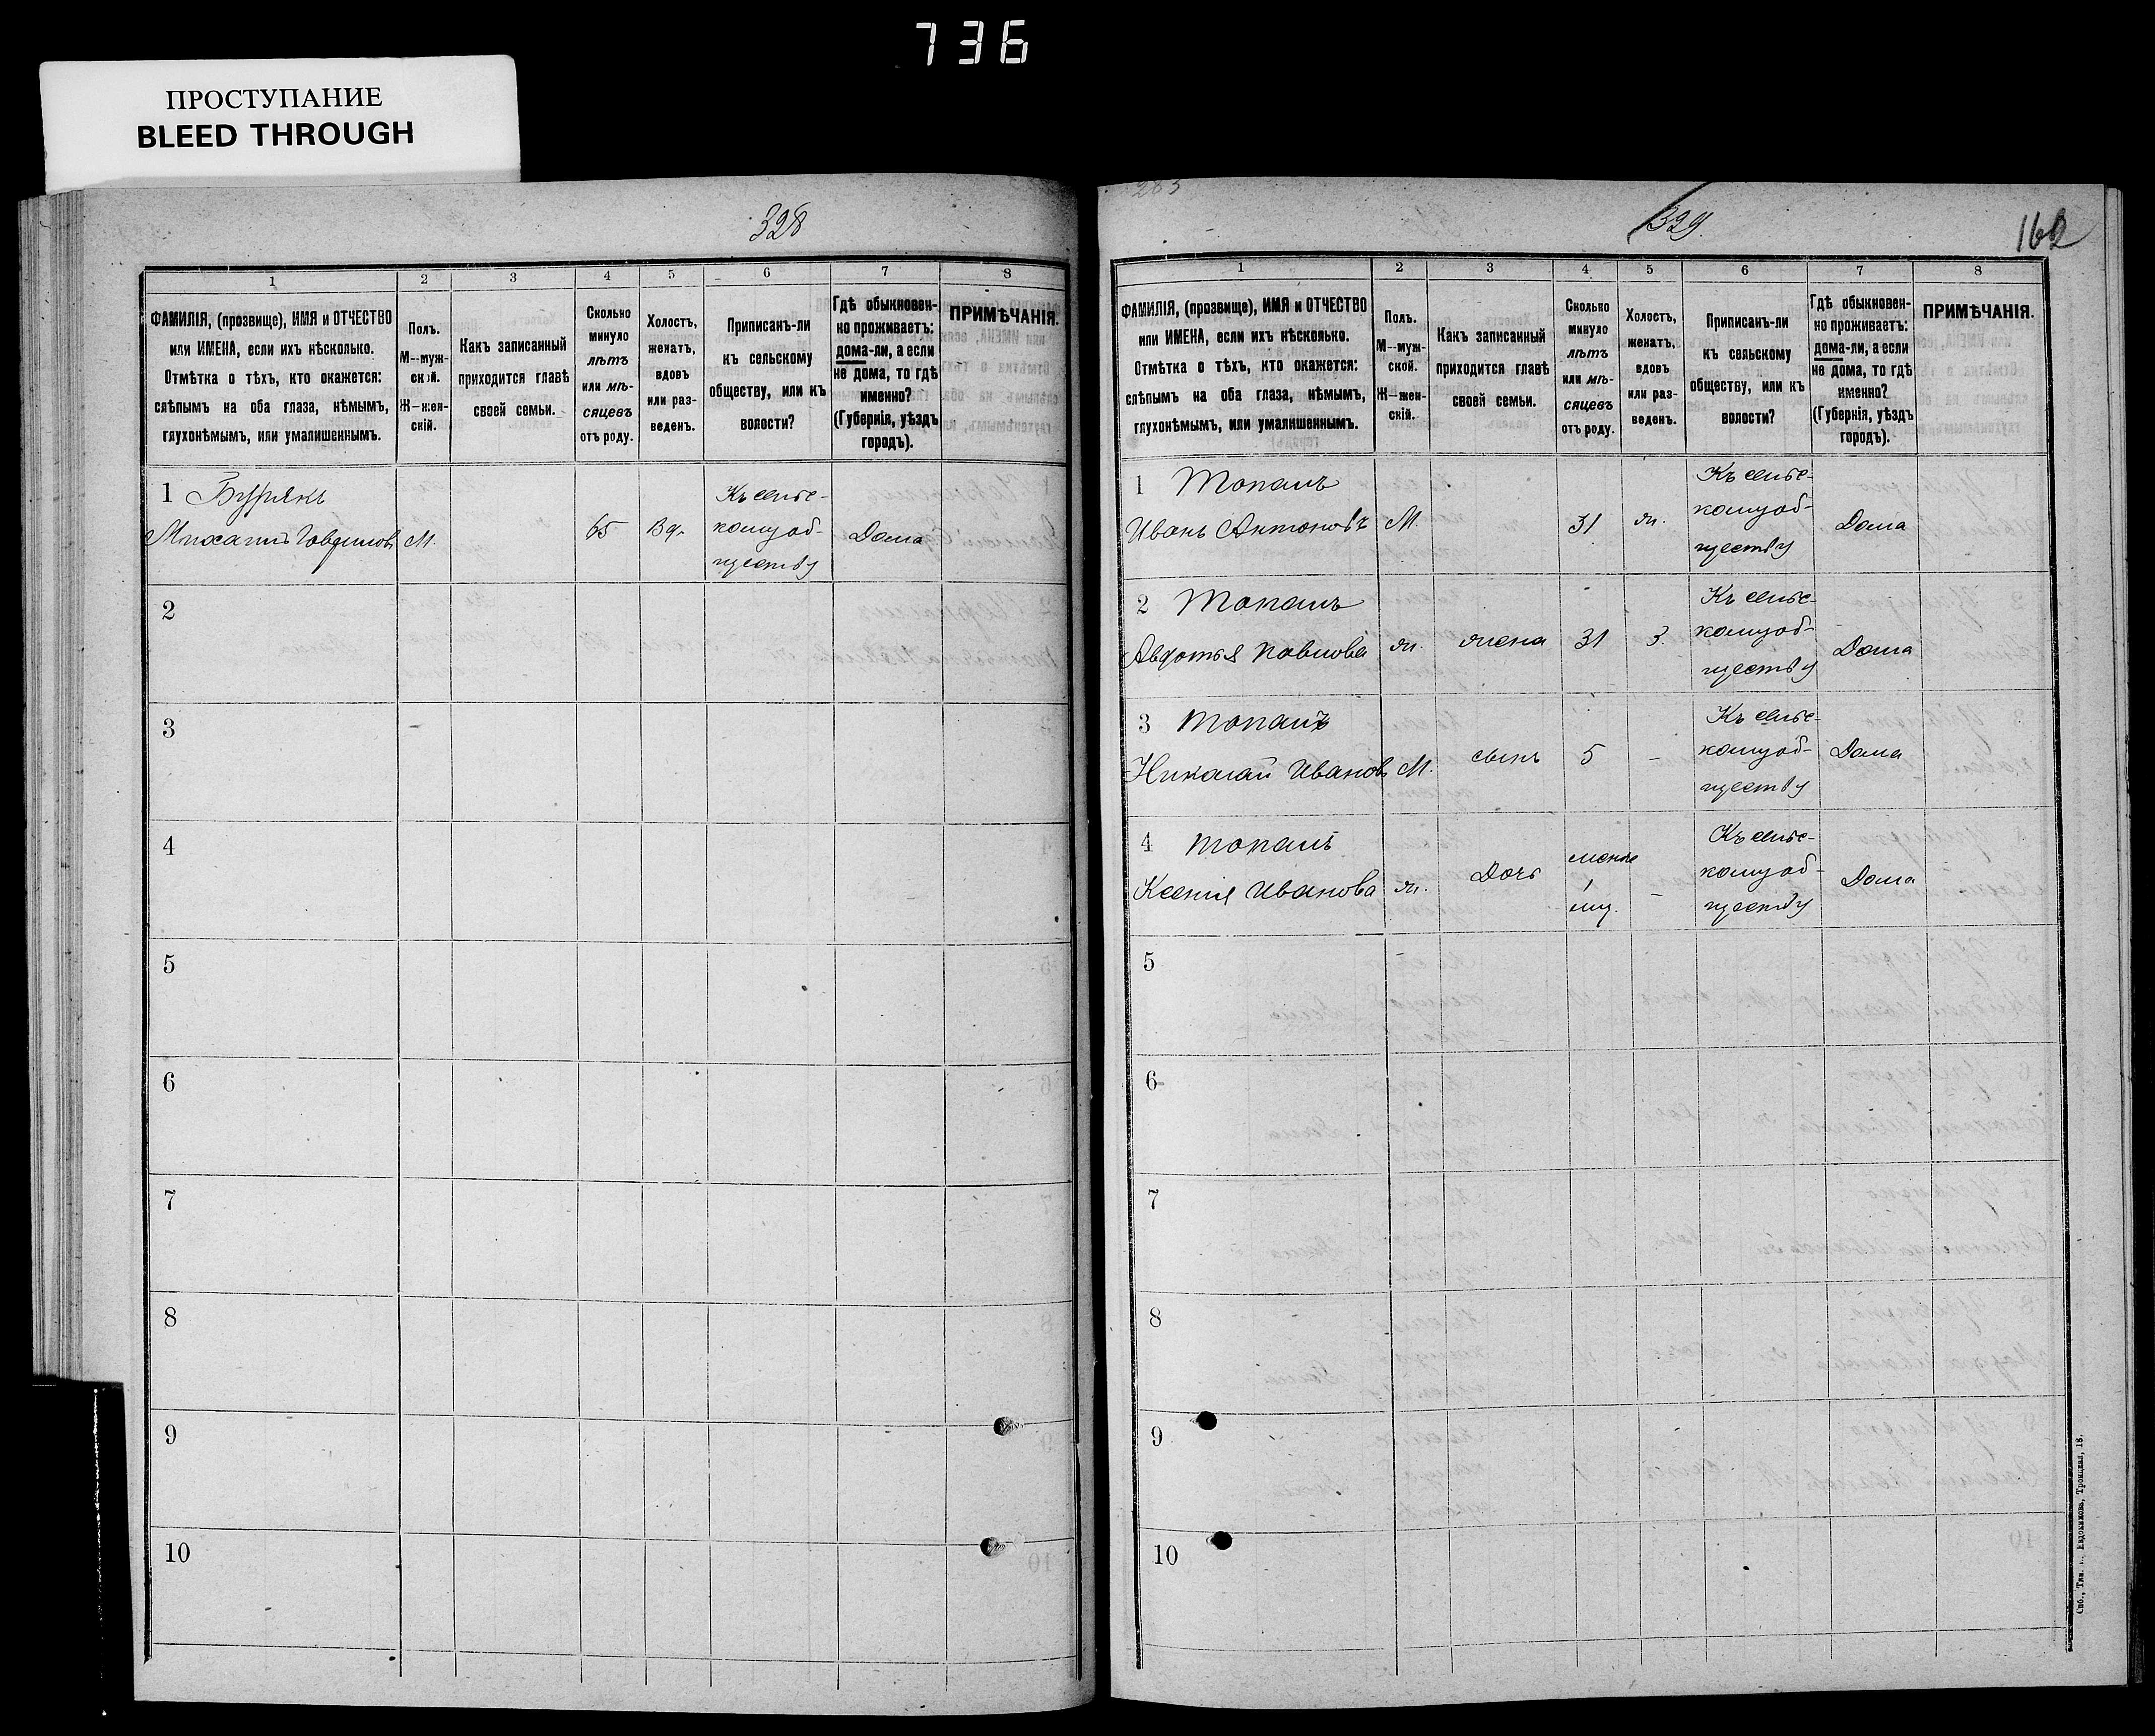 736
ПРОСТУПАНИЕ
BLEED THROUGH
328
1 2 3 4 5 6 7 8
ФАМИЛІЯ, (прозвище), ИМЯ и ОТЧЕСТВО
или ИМЕНА, если ихъ нѣсколько.
Отмѣтка о тѣхъ, кто окажется:
слѣпымъ на оба глаза, нѣмымъ,
глухонѣмымъ, или умалишеннымъ.
Полъ.
М--муж-
ской.
Ж--жен-
скій.
Какъ записанный
приходится главѣ
своей семьи.
Сколько
минуло
лѣтъ
или мѣ-
сяцевъ
отъ роду.
Холостъ,
женатъ,
вдовъ
или раз-
веденъ.
Приписанъ-ли
къ сельскому
обществу, или къ
волости?
Гдѣ обыкновен-
но проживаетъ:
дома-ли, а если
не дома, то гдѣ
именно?
(Губернія, уѣздъ
городъ).
ПРИМѢЧАНІЯ.
1 Бурякъ
Михаилъ
М.
65
Вд.
Къ сельс-
кому об-
ществу
Дома
2
3
4
5
6
7
8
9
10
283
329.
162
1 2 3 4 5 6 7 8
ФАМИЛІЯ, (прозвище), ИМЯ и ОТЧЕСТВО
или ИМЕНА, если ихъ нѣсколько.
Отмѣтка о тѣхъ, кто окажется:
слѣпымъ на оба глаза, нѣмымъ,
глухонѣмымъ, или умалишеннымъ.
Полъ.
М--муж-
ской.
Ж--жен-
скій.
Какъ записанный
приходится главѣ
своей семьи.
Сколько
минуло
лѣтъ
или мѣ-
сяцевъ
отъ роду.
Холостъ,
женатъ,
вдовъ
или раз-
веденъ.
Приписанъ-ли
къ сельскому
обществу, или къ
волости?
Гдѣ обыкновен-
но проживаетъ:
дома-ли, а если
не дома, то гдѣ
именно?
(Губернія, уѣздъ
городъ).
ПРИМѢЧАНІЯ.
1 Топалъ
Иванъ Антоновъ
М.
31
ж.
Къ сельс-
кому об-
ществу
Дома
2 Топалъ
Авдотья Павлова
ж.
жена
31
З.
Къ сельс-
кому об-
ществу
Дома
3 Топалъ
Николай Ивановъ
М.
сынъ
5
–
Къ сельс-
кому об-
ществу
Дома
4 Топалъ
Ксенія Иванова
ж.
Дочь
менѣе
1
мц.
–
Къ сельс-
кому об-
ществу
Дома
5
6
7
8
9
10
Спб., Тип. Евдокимова, Троицкая, 18.